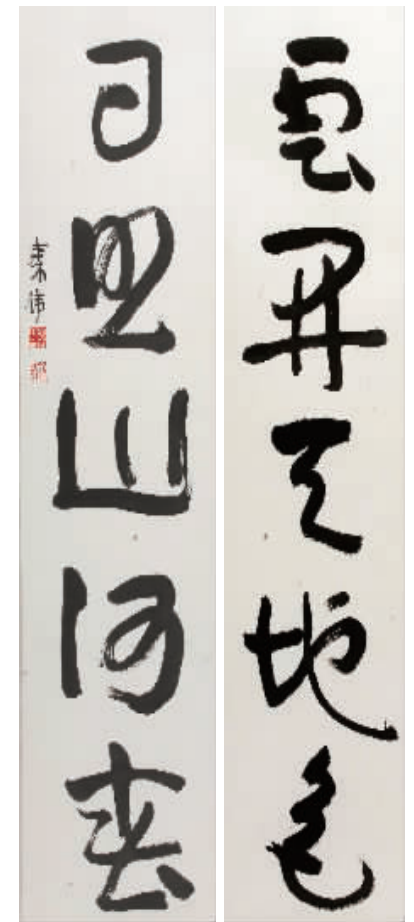 雲開天地色
日照山河春
秦偉